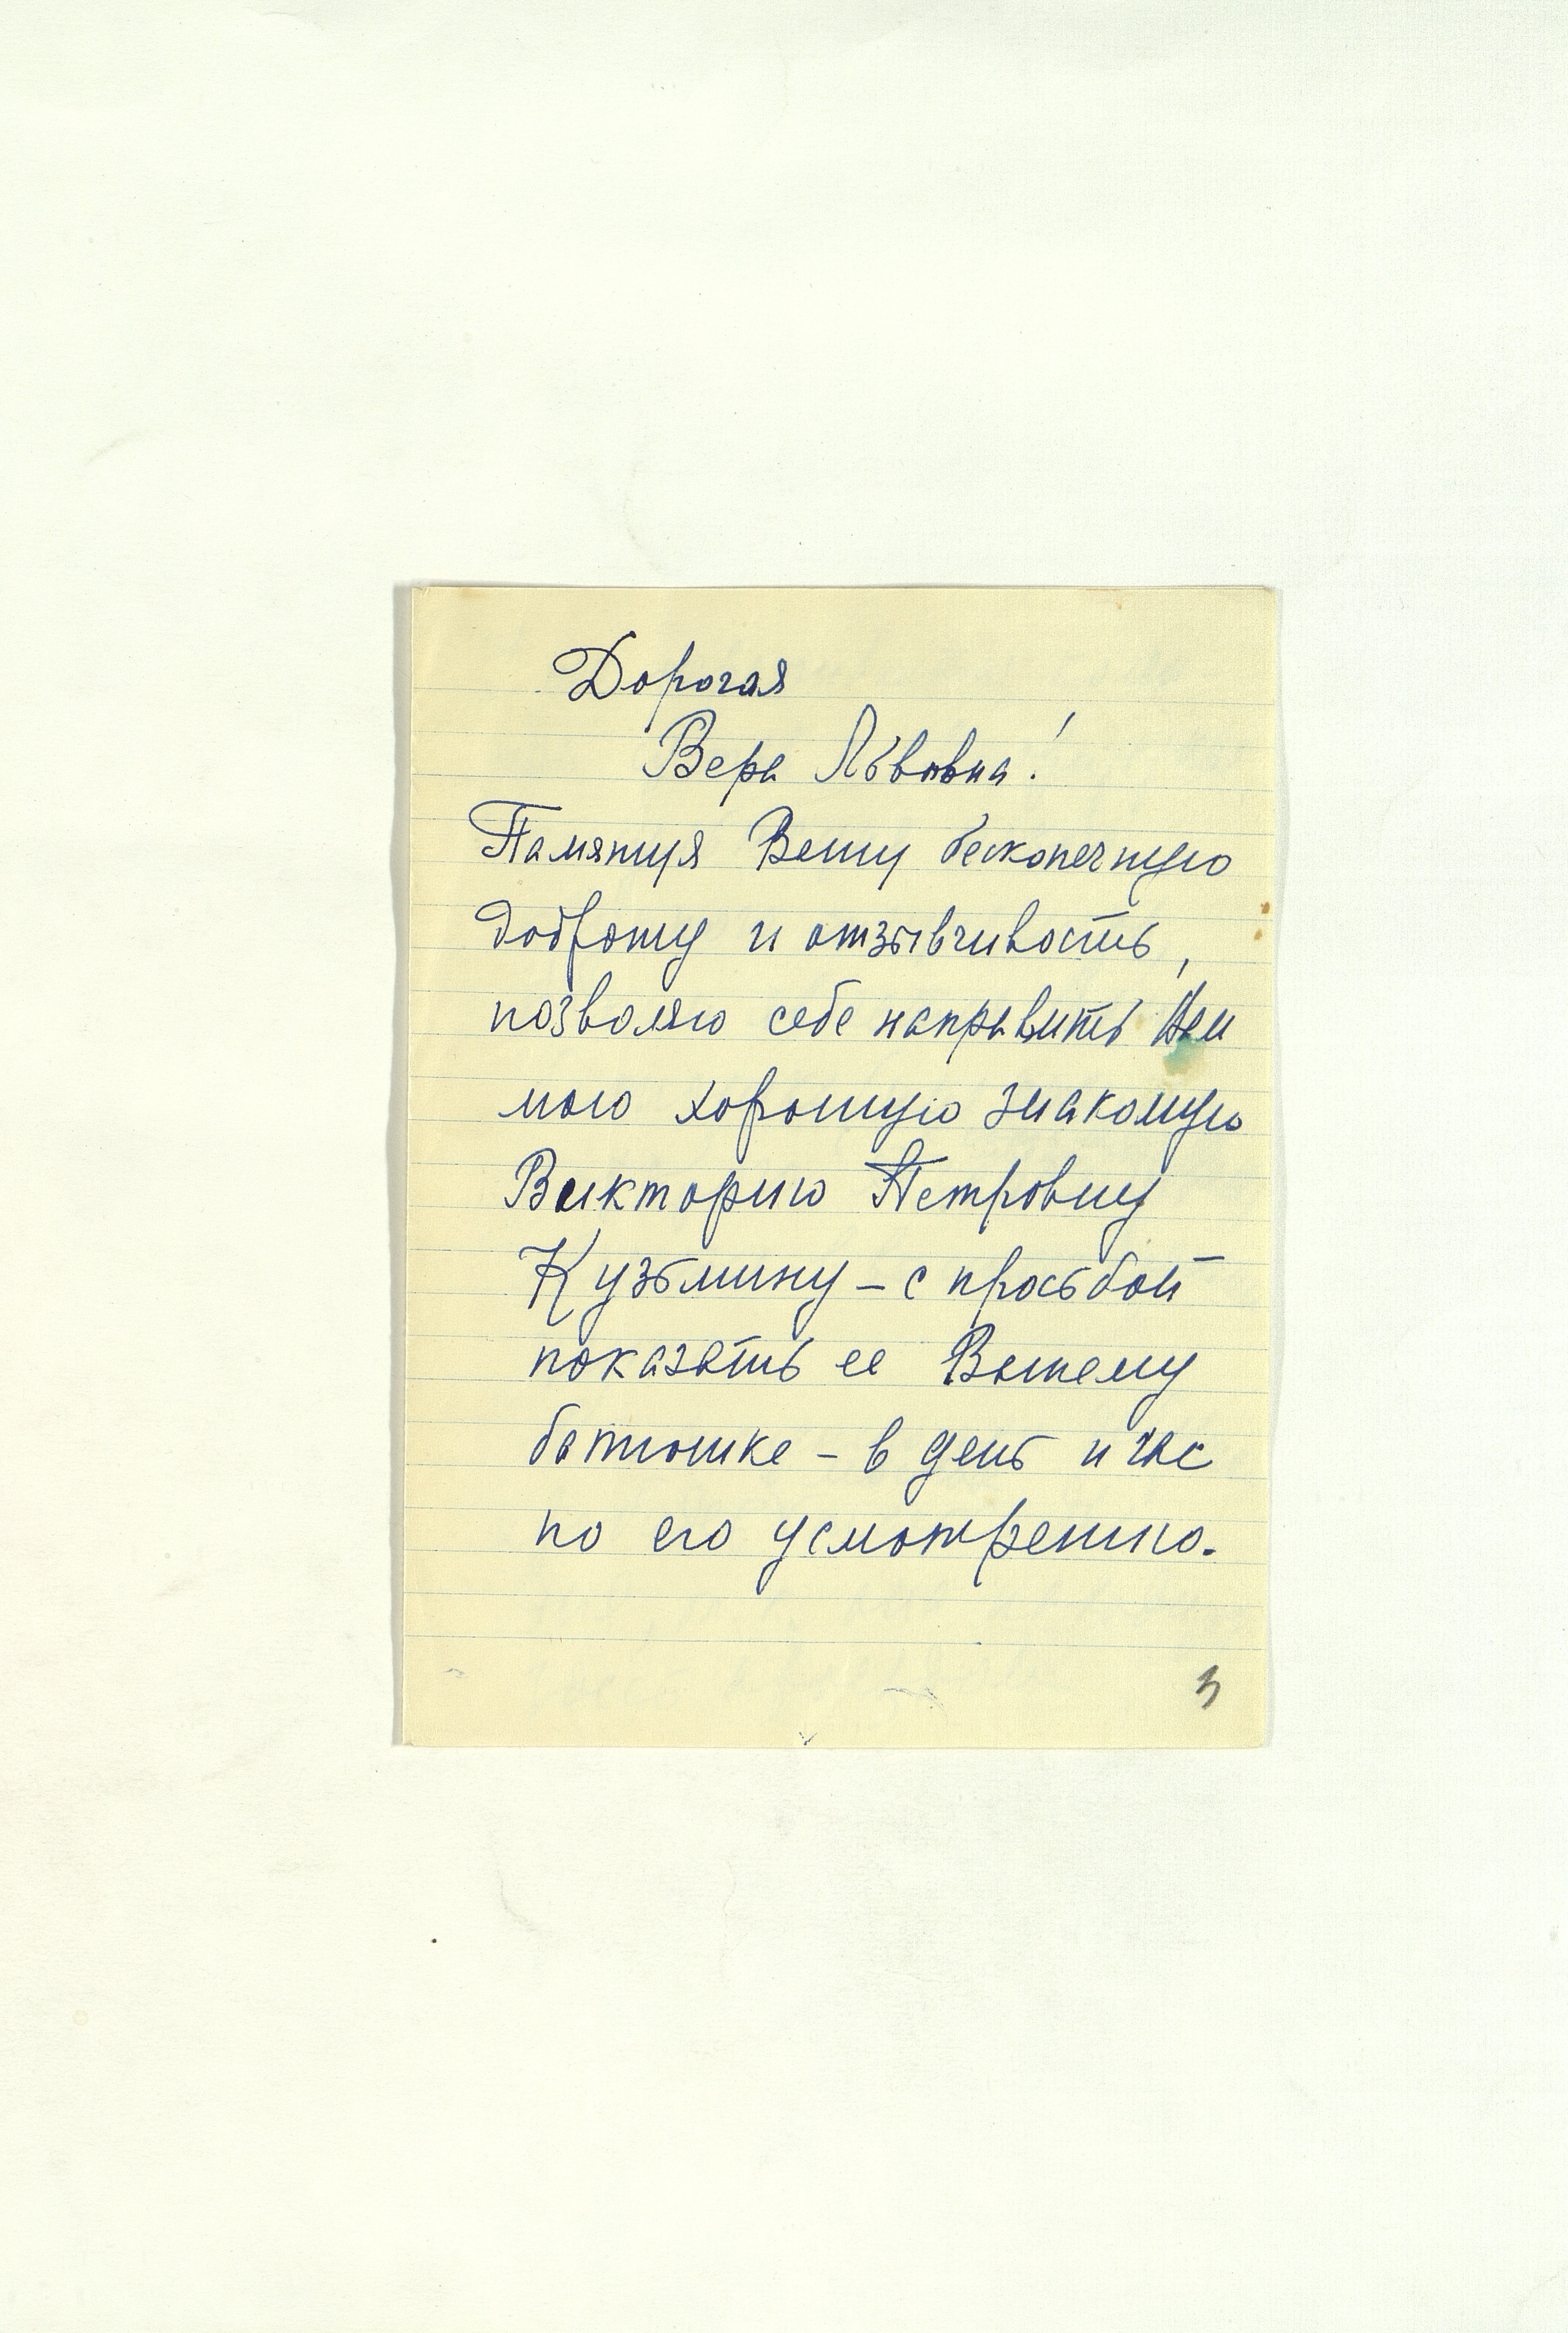 Дорогая
Вера Львовна!
Памятуя Вашу бесконечную
доброту и отзывчивость,
позволяю себе направить Вам
мою хорошую знакомую
Викторию Петровну
Кузьмину – с просьбой
показать ее Вашему
батюшке – в день и час
по его усмотрению.
3